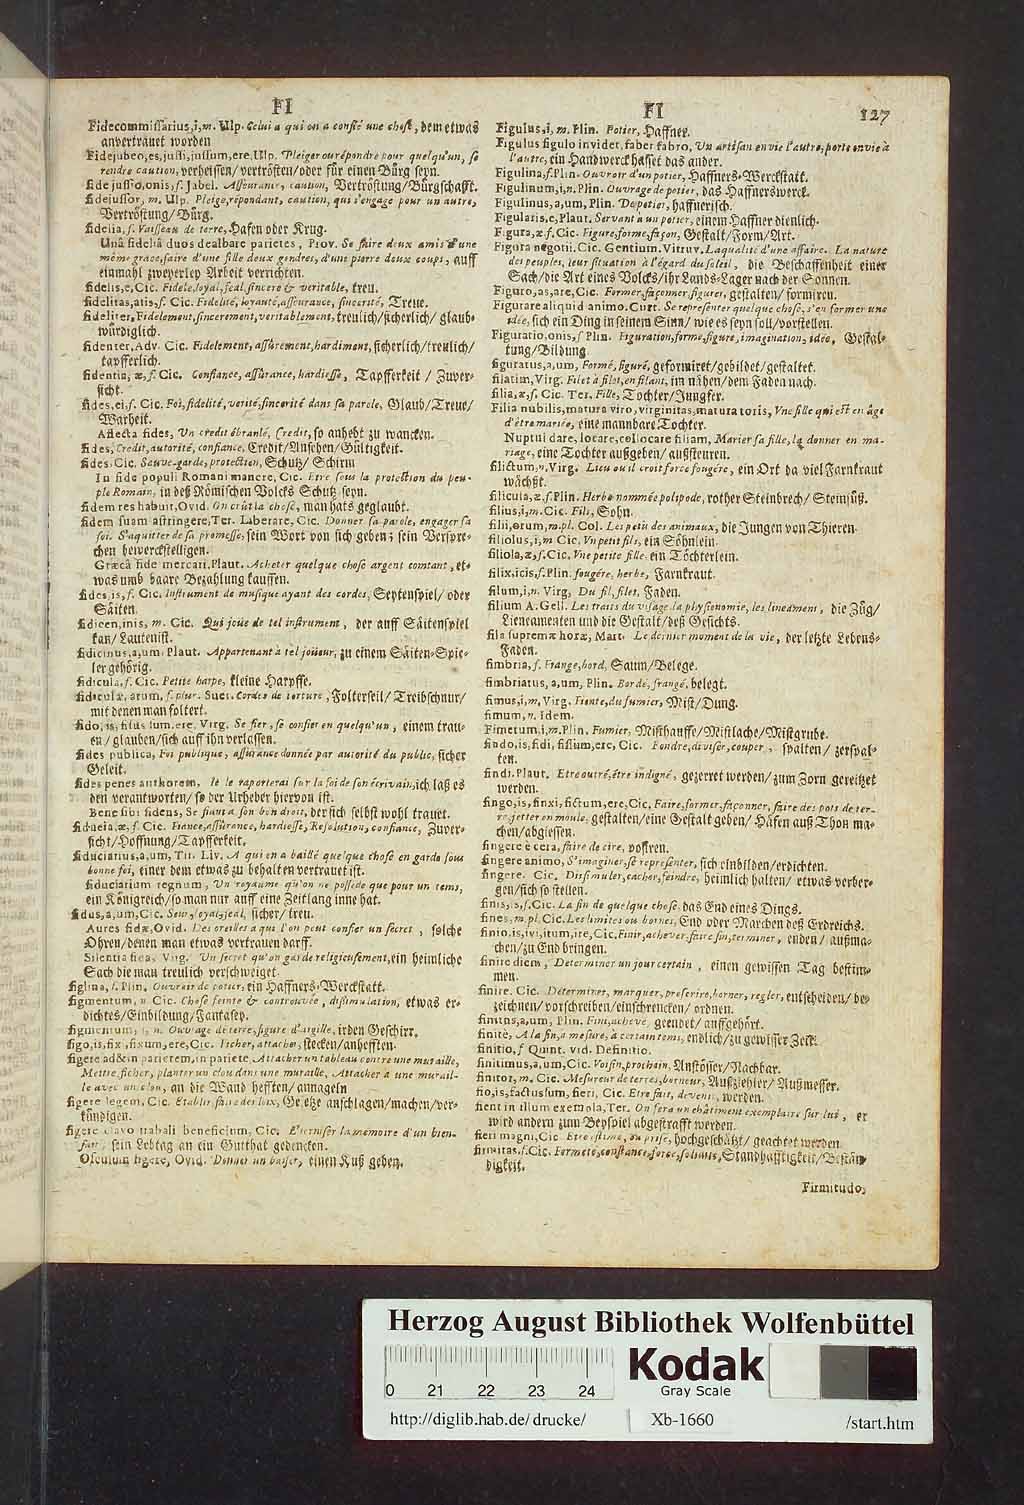 FI
Fidecommissarius,i,m. Ulp. Celui a qui on a confié une chose, dem etwas
anvertrauet worden
Fidejubeo,es,jussi,jussum,ere,Ulp. Pleiger ou répondre pour quelqu'un, se
rendre caution, verheissen/ vertrösten/oder für einen Bürg seyn.
fidejussio,onis,f. Jabol. Assurance, caution, Vertröstung/Bürgschafft.
fidejussor, m. Ulp. Pleige, répondant, caution, qui s'engage pour un autre,
Vertröstung/Bürg.
fidelia, f. Vaisseau de terre, Hafen oder Krug.
Unâ fideliâ duos dealbare parietes, Prov. Se faire deux amis d'une
même grace, faire d'une fille deux gendres, d'une pierre deux coups, auff
einmahl zweyerley Arbeit verrichten.
fidelis,e,Cic. Fidele,loyal,feal,sincere & veritable, treu.
fidelitas,atis,f. Cic. Fidelité, loyauté, assourance, sincerité, Treue.
fideliter, Fidelement, sincerement, veritablement, treulich/sicherlich/ glaub-
würdiglich.
fidenter, Adv. Cic. Fidelement, assûrement, hardiment, sicherlich/treulich/
tapfferlich.
fidentia, æ, f. Cic. Confiance, assûrance, hardiesse, Tapfferkeit / Zuver-
sicht.
fides,ei,f. Cic. Foi, fidelité, verité, sincerité dans sa parole, Glaub/Treue/
Warheit.
Affecta fides, Un credit ébranlé, Credit, so anhebt zu wancken.
fides, Credit, autorité, confiance, Credit/Ansehen/Gültigkeit.
fides, Cic. Sauve-garde, protection, Schutz/ Schirm
In fide populi Romani manere, Cic. Etre sous la protection du peu-
ple Romain, in deß Römischen Volcks Schutz seyn.
fidem res habuit, Ovid. On crût la chose, man hats geglaubt.
fidem suam astringere, Ter. Liberare, Cic. Donner sa parole, engager sa
foi. S'aquitter de sa promesse, sein Wort von sich geben; sein Verspre-
chen bewerckstelligen.
Græcâ fide mercari, Plaut. Acheter quelque chose argent comtant, et-
was umb baare Bezahlung kauffen.
fides,is,f. Cic. Instrument de musique ayant des cordes, Seytenspiel/ oder
Säiten.
fidicen,inis, m. Cic. Qui joüe de tel instrument, der auff Säitenspiel
kan/ Lautenist.
fidicinus,a,um. Plaut. Appartenant à tel joüeur, zu einem Säiten-Spie-
ler gehörig.
fidicula, f. Cic. Petite harpe, kleine Harpffe.
fidiculæ, arum, f. plur. Suet. Cordes de torture, Folterseil/ Treibschnur/
mit denen man foltert.
fido,is,fisus sum,ere, Virg. Se fier, se confier en quelqu'un, einem trau-
en/ glauben/sich auff ihn verlassen.
fides publica, Foi publique, assurance donnée par autorité du public, sicher
Geleit.
fides penes authorem, Je le raporterai sur la foi de son écrivain, ich laß es
den verantworten/ so der Urheber hiervon ist.
Bene sibi fidens, Se fiant a son bon droit, der sich selbst wohl trauet.
fiducia,æ, f. Cic. Fiance, assûrance, hardiesse, Resolution, confiance, Zuver-
sicht/Hoffnung/Tapfferkeit.
fiduciarius,a,um, Tit. Liv. A qui on a baillé quelque chose en garde sous
bonne foi, einer dem etwas zu behalten vertrauet ist.
fiduciarium regnum, Un royaume qu'on ne possede que pour un tems,
ein Königreich/so man nur auff eine Zeitlang inne hat.
fidus,a,um,Cic. Seur, loyal, feal, sicher/ treu.
Aures fidæ,Ovid. Des oreilles a qui l'on peut confier un secret, solche
Ohren/denen man etwas vertrauen darff.
Silentia fida, Virg. Un secret qu'on garde religieusement, ein heimliche
Sach die man treulich verschweiget.
figlina, f. Plin. Ouvroir de potier, ein Haffners-Werckstatt.
figmentum, n Cic. Chose feinte & controuvée, dissimulation, etwas er-
dichtes/Einbildung/Fantasey.
figmentum, i, n. Ouvrage de terre, figure d'argille, irden Geschirr.
figo,is,fix,fixum,ere,Cic. Ficher, attacher, stecken/anhefften.
figere ad & in parietem, in pariete, Attacher un tableau contre une muraille,
Mettre, ficher, planter un clou dans une muraille, Attacher a une murail-
le avec un clou, an die Wand hefften/ annageln
figere legem, Cic. Etablir, faire des loix, Gesetze anschlagen/machen/ver-
kündigen.
figere clavo trabali beneficium, Cic. Eterniser la memoire d'un bien-
fait, sein Lebtag an ein Gutthat gedencken.
Osculum figere, Ovid. Donner un baiser, einen Kuß geben.
FI
127
Figulus,i, m. Plin. Potier, Haffner.
Figulus figulo invidet, faber fabro, Un artisan envie l'autre, porte envie à
l'autre, ein Handwerck hasset das ander.
Figulina, f. Plin. Ouvroir d'un potier, Haffners-Werckstatt.
Figulinum,i,n. Plin. Ouvrage de potier, das Haffnerswerck.
Figulinus,a,um, Plin. De potier, haffnerisch.
Figularis,e,Plaut. Servant a un potier, einem Haffner dienlich.
Figura,æ,f. Cic. Figure, forme, façon, Gestalt/Form/Art.
Figura negotii. Cic. Gentium. Vitruv. La qualité d'une affaire. La nature
des peuples, leur situation à l'égard du soleil, die Beschaffenheit einer
Sach/die Art eines Volcks/ihr Lands-Lager nach der Sonnen.
Figuro,as,are,Cic. Former, façonner, figurer, gestalten/ formiren.
Figurare aliquid animo. Curt. Se representer quelque chose, s'en former une
idée, sich ein Ding in seinem Sinn/ wie es seyn soll/vorstellen.
Figuratio,onis,f Plin. Figuration, forme, figure, imagination, idée, Gestal-
tung/Bildung
figuratus,a,um, Formé, figuré, geformiret/gebildet/gestaltet.
filatim, Virg. Filet à filet, en filant, im nähen/dem Faden nach.
filia,æ,f. Cic. Ter. Fille, Tochter/Jungfer.
Filia nubilis, matura viro, virginitas, matura toris, Une fille qui est en âge
d'être mariée, eine mannbare Tochter.
Nuptui dare, locare, collocare filiam, Marier sa fille, la donner en ma-
riage, eine Tochter außgeben/ außsteuren.
filictum,n. Virg. Lieu ou il croit force fougére, ein Ort da viel Farnkraut
wächst.
filicula,æ,f. Plin. Herbe nommée polipode, rother Steinbrech/ Steinsüß.
filius,i,m. Cic. Fils, Sohn.
filii,orum,m.pl. Col. Les petits des animaux, die Jungen von Thieren.
filiolus,i,m Cic. Un petit fils, ein Söhnlein.
filiola,æ,f. Cic. Une petite fille. ein Töchterlein.
filix,icis,f. Plin. fougére, herbe, Farnkraut.
filum,i,n. Virg, Du fil, filet, Faden.
filium A. Gell. Les traits du visage la physionomie, les lineament, die Züg/
Lieneamenten und die Gestalt/deß Gesichts.
fila supremæ horæ, Mart. Le dernier moment de la vie, der letzte Lebens-
Faden.
fimbria, f. Frange, bord, Saum/Belege.
fimbriatus, a,um, Plin. Bordé, frangé, belegt.
fimus,i,m, Virg. Fiente, du fumier, Mist/Dung.
fimum, n. Idem.
Fimetum,i,m. Plin. Fumier, Misthauffe/Mistlache/Mistgrube.
findo,is,fidi, fissum,ere, Cic. Fendre, diviser, couper, spalten/ zerspal-
ten.
findi. Plaut. Etre outré, être indigné, gezerret werden/ zum Zorn gereitzet
werden.
fingo,is,finxi,fictum,ere,Cic, Faire, former, façonner, faire des pots de ter-
re, jetter en moule, gestalten/eine Gestalt geben/ Häfen auß Thon ma-
chen/abgiessen.
fingere è cera, faire de cire, possiren.
fingere animo, S'imaginer, se representer, sich einbilden/erdichten.
fingere. Cic. Dissimuler, cacher, feindre, heimlich halten/ etwas verber-
gen/sich so stellen.
finis,is,f. Cic. La fin de quelque chose, das End eines Dings.
fines, m.pl. Cic. Les limites ou bornes, End oder Marchen deß Erdreichs.
finio,is,ivi,itum,ire,Cic. Finir, achever, faire fin, terminer, enden/ außma-
chen/zu End bringen.
finire diem, Determiner un jour certain, einen gewissen Tag bestim-
men.
finire. Cic. Déterminer, marquer, prescrire, borner, regler, entscheiden/ be-
zeichnen/vorschreiben/einschrencken/ ordnen.
finitus,a,um, Plin. Fini, achevé, geendet/ auffgehört.
finitè, A la fin, a mesure, à certain tems, endlich/zu gewisser Zeit.
finitio, f Quint. vid. Definitio.
finitimus,a,um,Cic. Voisin, prochain, Anstösser/Nachbar.
finitor, m. Cic. Mesureur de terres, borneur, Außziehler/ Außmesser.
fio,is,factus sum, fieri, Cic. Etre fait, devenir, werden.
fient in illum exempla, Ter. On fera un châtiment exemplaire sur lui, er
wird andern zum Beyspiel abgestrafft werden.
fieri magni, Cic Etre estimé, en prise, hochgeschätzt/ geachtet werden
firmitas,f. Cic. Fermeté, constance, force, solidité, Standhafftigkeit/Bestän-
digkeit.
Firmitudo,
Herzog August Bibliothek Wolfenbüttel
0 21 22 23 24
Kodak
Gray Scale
http://diglib.hab.de/ drucke/ Xb-1660 /start.htm